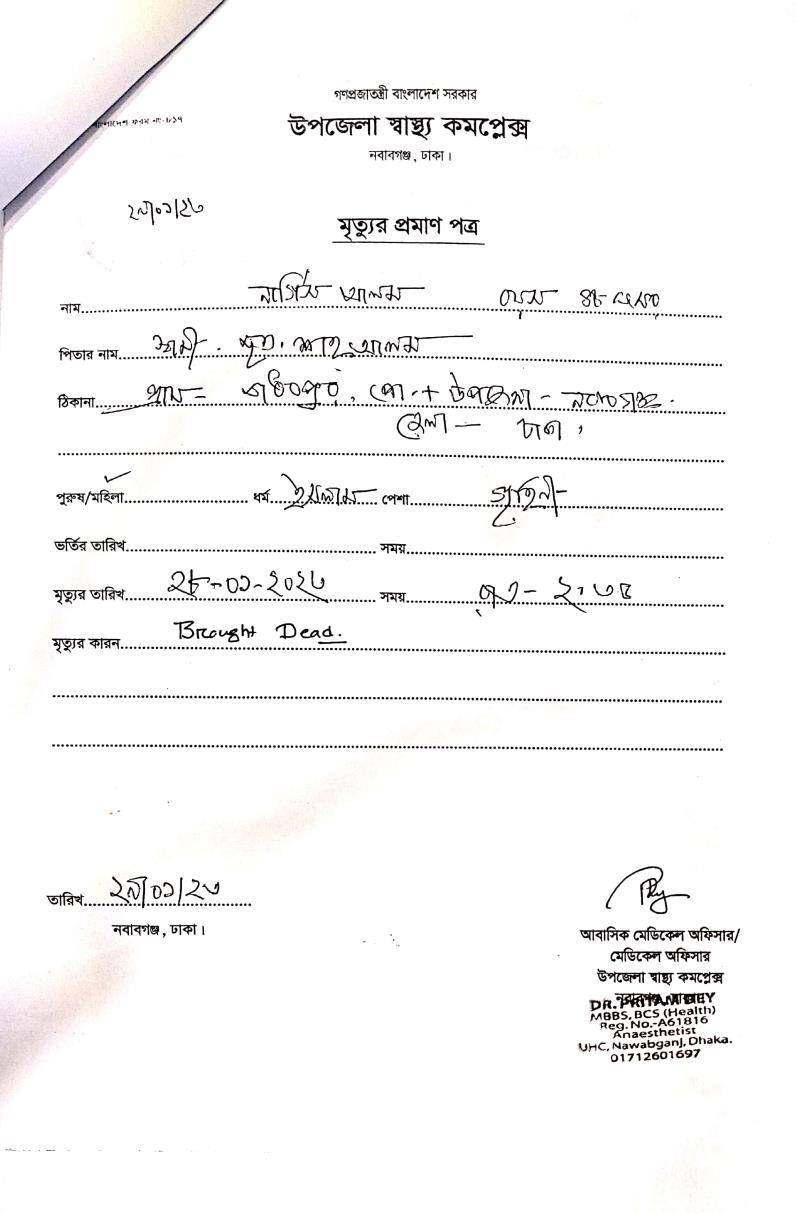 গণপ্রজাতন্ত্রী বাংলাদেশ সরকার
বাংলাদেশ ফরম নং-৮১৭
উপজেলা স্বাস্থ্য কমপ্লেক্স
নবাবগঞ্জ, ঢাকা।
২৯/০১/২৩
মৃত্যুর প্রমাণ পত্র
নাম নার্গিস আলম বয়স ৪৮ বৎসর
পিতার নাম স্বামী- মৃত. শাহ আলম
ঠিকানা গ্রাম= পো.+ উপজেলা - নবাবগঞ্জ.
জেলা — ঢাকা,
পুরুষ/মহিলা ✓ ধর্ম ইসলাম পেশা গৃহিনী-
ভর্তির তারিখ সময়
মৃত্যুর তারিখ ২৮-০১-২০২৩ সময়
মৃত্যুর কারন Brought Dead.
তারিখ ২৯/০১/২৩
নবাবগঞ্জ, ঢাকা।
আবাসিক মেডিকেল অফিসার/
মেডিকেল অফিসার
উপজেলা স্বাস্থ্য কমপ্লেক্স
নবাবগঞ্জ, ঢাকা
DR. PRITAM DEY
MBBS, BCS (Health)
Reg. No.-A61816
Anaesthetist
UHC, Nawabganj, Dhaka.
01712601697